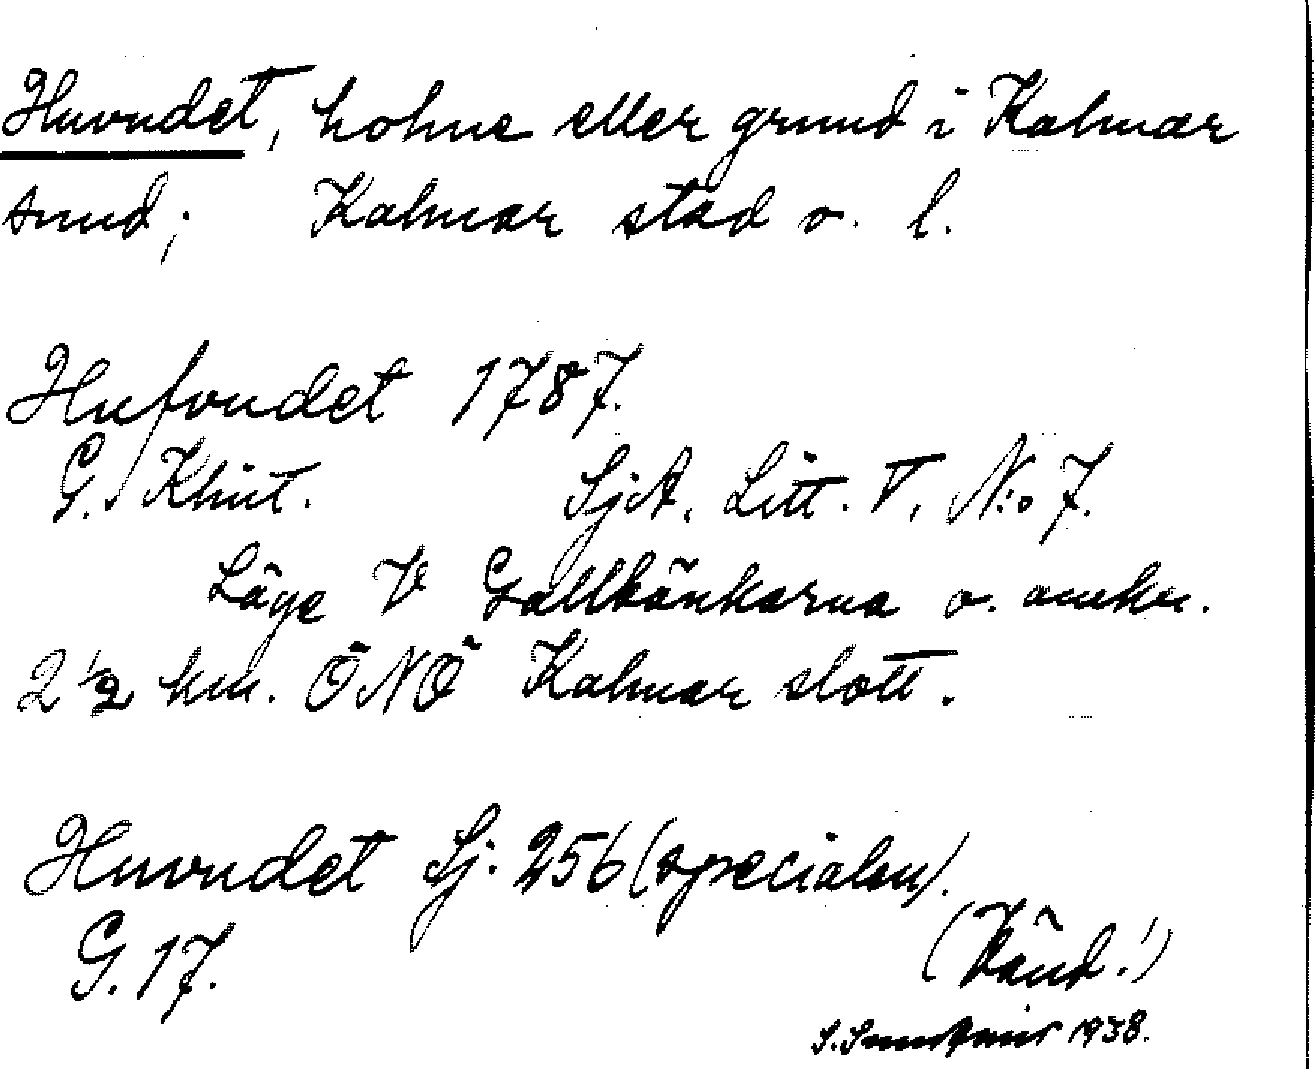 Huvudet, kolme eller grund i Kalmar
sund; Kalmar stad o. l.
Hufvudet 1787.
G. Klint. SjA. Litt. V, N:o 7.
Läge V Grällbänkarna o. omkr.
2 1/2 km. ÖNÖ Kalmar slott.
Huvudet Sj. 256 (specialen).
G. 17.
(Vänd!)
1938.